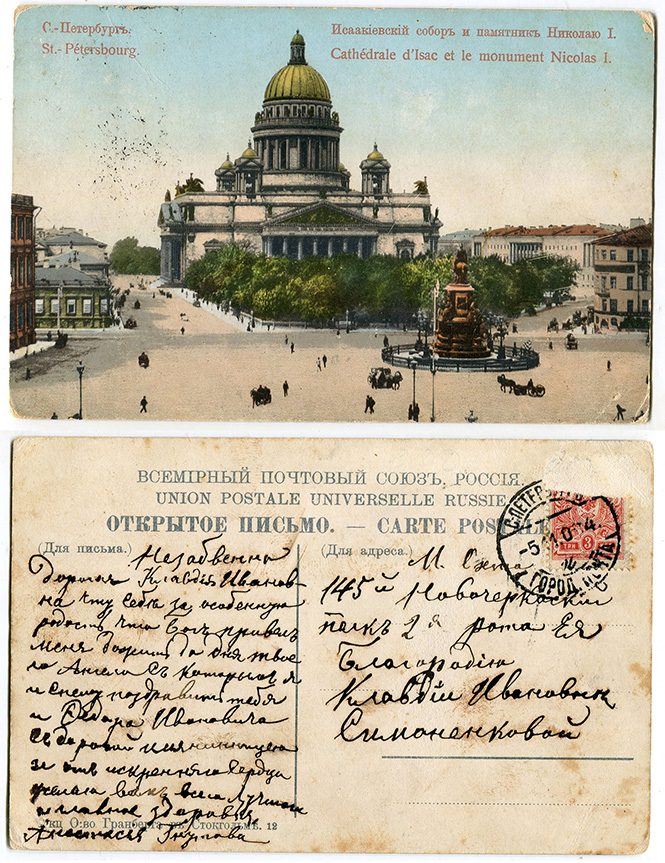 С.-Петербургъ.
St.-Pétersbourg.
Исаакіевскій соборъ и памятникъ Николаю I.
Cathédrale d'Isac et le monument Nicolas I.
ВСЕМІРНЫЙ ПОЧТОВЫЙ СОЮЗЪ, РОССІЯ.
UNION POSTALE UNIVERSELLE RUSSIE.
ОТКРЫТОЕ ПИСЬМО. — CARTE POSTAL
(Для письма.)
Незабвенна
Дорогая Клавдія Иванов-
на чту себѣ за особенную
радость что Богъ привелъ
меня дожить до дня твое
го Ангела съ которымъ я
и спешу поздравить тебя
и Федора Ивановича
съ дорогой имянинницею
и отъ искренняго сердца
желаю вамъ всего лучшаго
и главное здоровья
Анастасія
Акц О:во Гранберга въ Стокгольмѣ. 12
(Для адреса.)
М.
145й Новочеркаскій
полкъ 2я рота Ея
Благородію
Клавдіи Ивановнѣ
Симоненковой
С.ПЕТЕР
ГОРОД. ПОЧТА
3
ТРИ